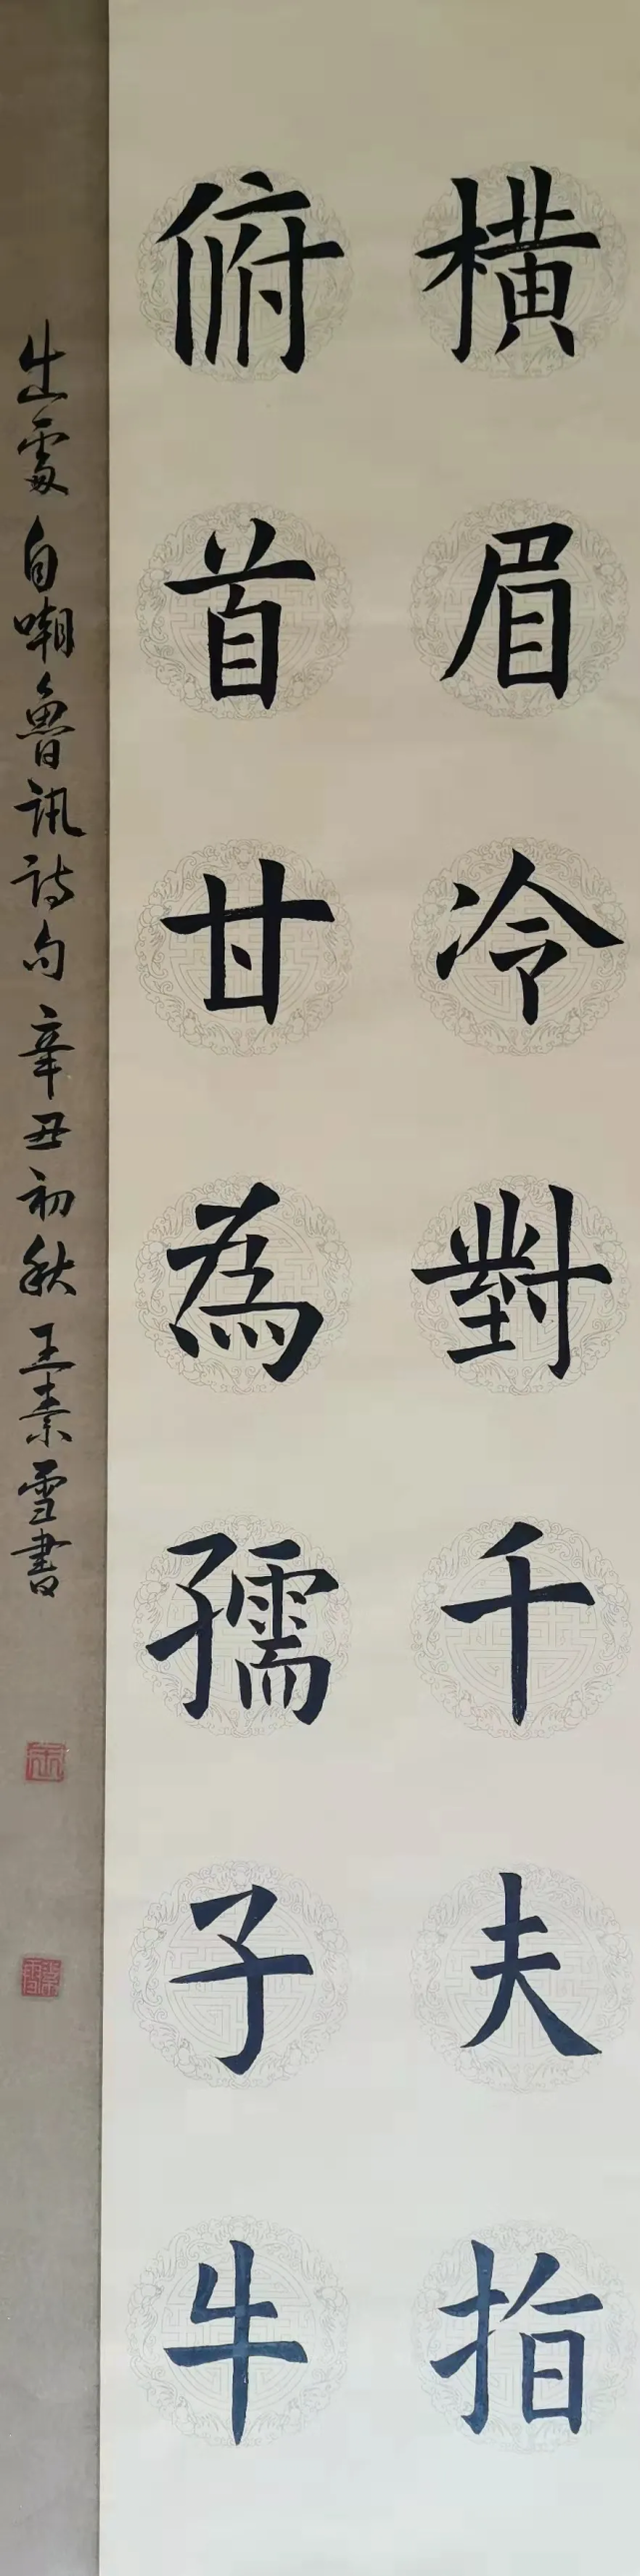 橫眉冷對千夫指
俯首甘為孺子牛
出處自嘲魯訊詩句辛丑初秋王素雪書